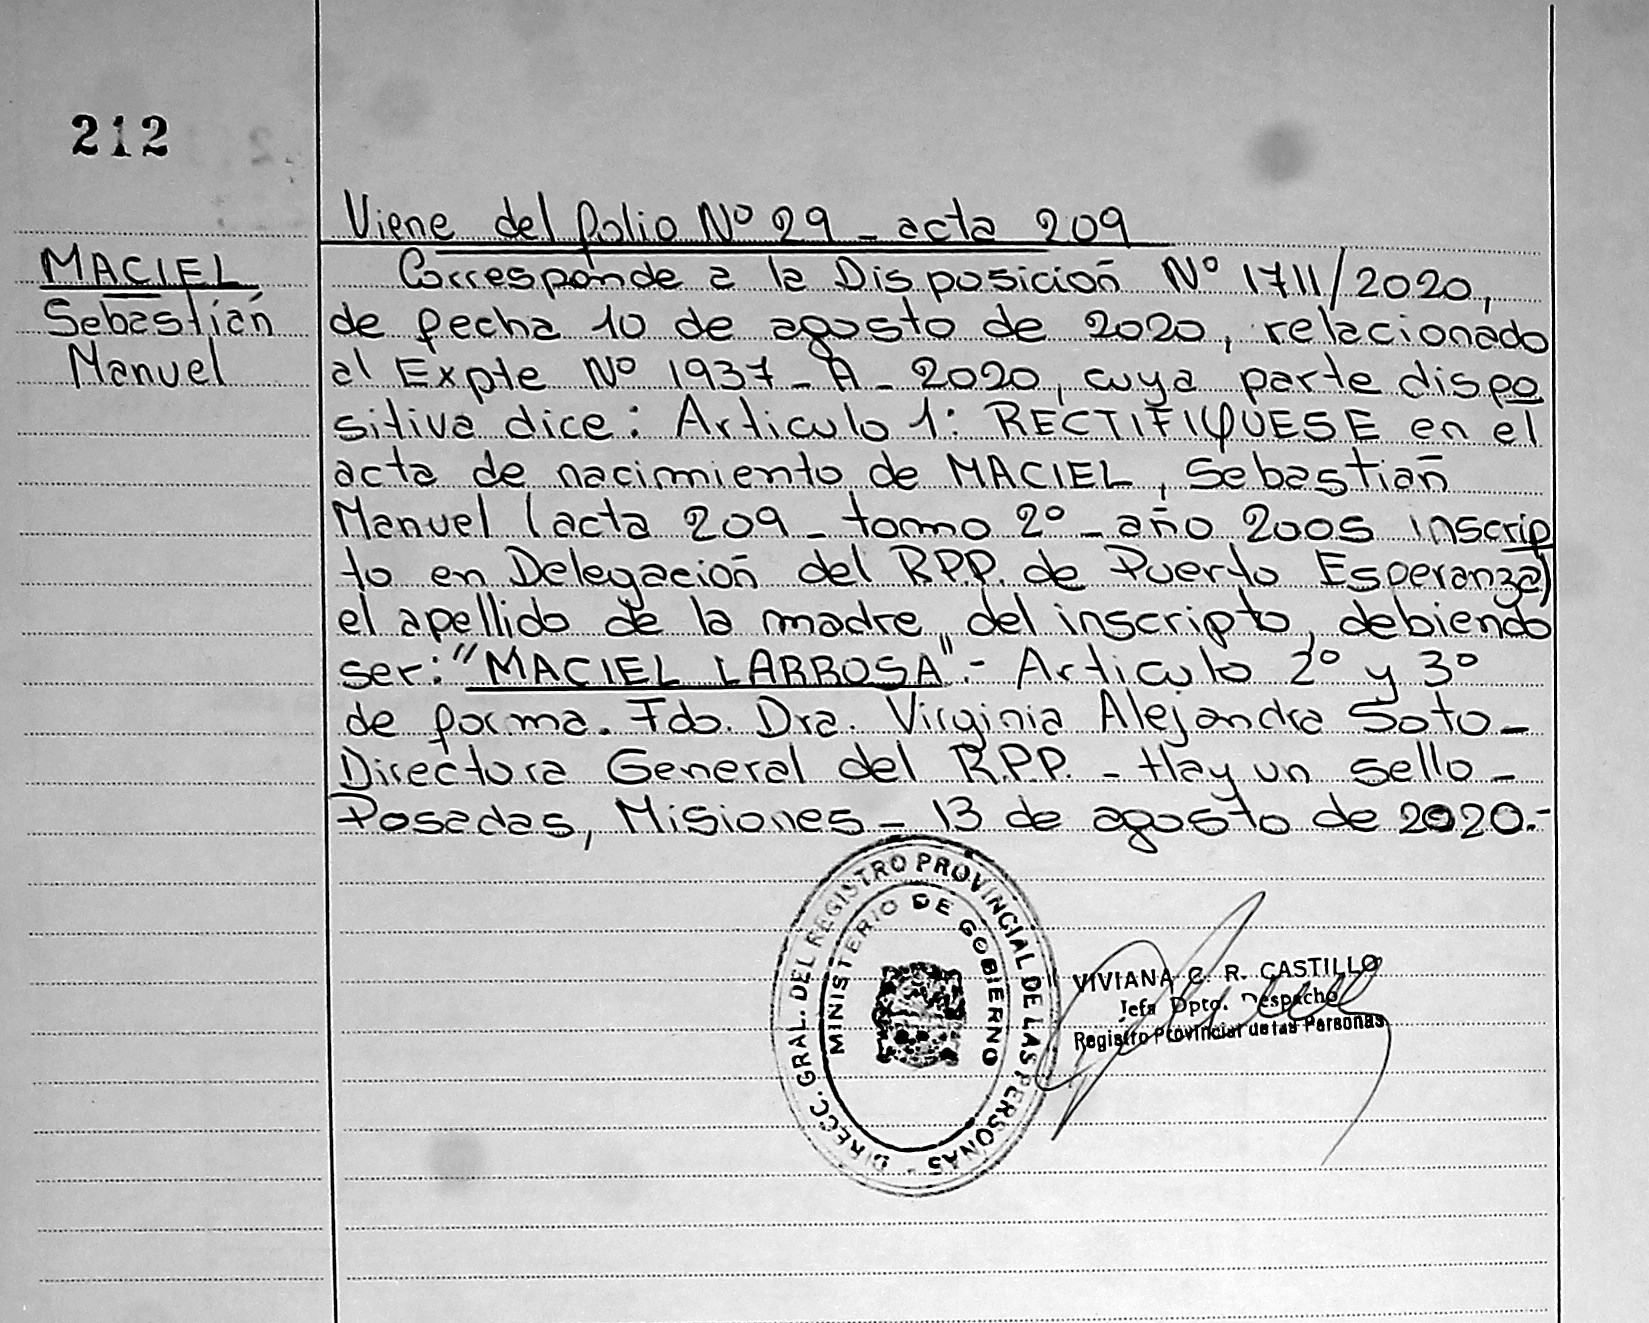 212
Viene del folio Nº 29 - acta 209
MACIEL
Sebastián
Manuel
Corresponde a la Disposición Nº 1711/2020,
de fecha 10 de agosto de 2020, relacionado
al Expte Nº 1937-A-2020, cuya parte dispo
sitiva dice: Articulo 1: RECTIFIQUESE en el
acta de nacimiento de MACIEL, Sebastián
Manuel (acta 209 - tomo 2º - año 2005 inscrip
to en Delegación del RPP. de Puerto Esperanza)
el apellido de la madre, del inscripto, debiendo
ser: "MACIEL LARROSA".- Articulo 2º y 3º
de forma. Fdo. Dra. Virginia Alejandra Soto-
Directora General del R.P.P. - Hay un sello -
Posadas, Misiones - 13 de agosto de 2020.-
DIRECC. GRAL. DEL REGISTRO PROVINCIAL DE LAS PERSONAS -
MINISTERIO DE GOBIERNO
VIVIANA C. R. CASTILLO
Jefa Dpto. Despacho
Registro Provincial de las Personas